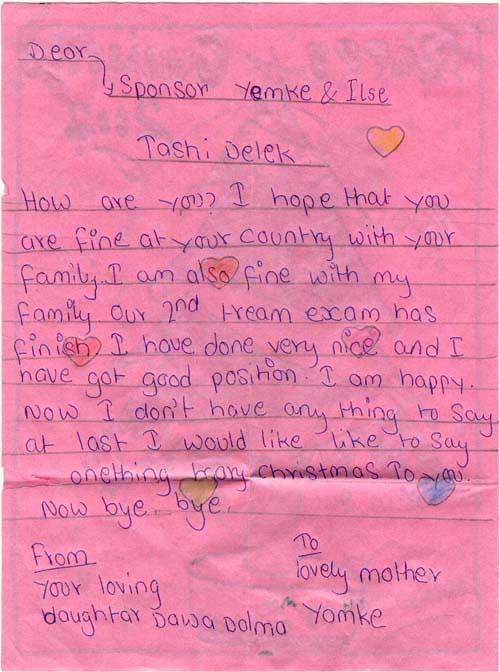 Dear
Sponsor Yemke & Ilse
Tashi Delek
How are you? I hope that you
are fine at your country with your
family. I am also fine with my
family our 2nd tream exam has
finish. I have done very nice and I
have got good position. I am happy.
Now I don't have any thing to say
at last I would like like to say
onething
christmas To you.
Now bye. bye.
From
your loving
daughtar Dawa Dolma
To
lovely mother
Yomke